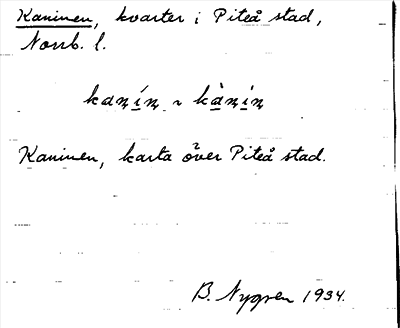 Kaninen, kvarter i Piteå stad,
Norrb. l.
kanín ~ kànín
Kaninen, karta över Piteå stad.
B. Nygren 1934.